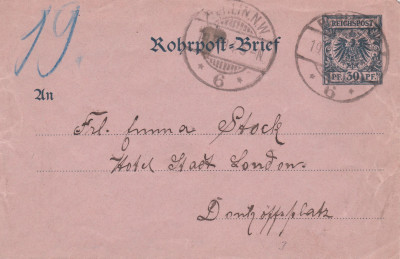 19.
BERLIN N.W.
6
Rohrpost-Brief
REICHSPOST
PF. 30 PF.
6
An
Frl. Emma Stock
Hotel Stadt London
Dönhoffplatz